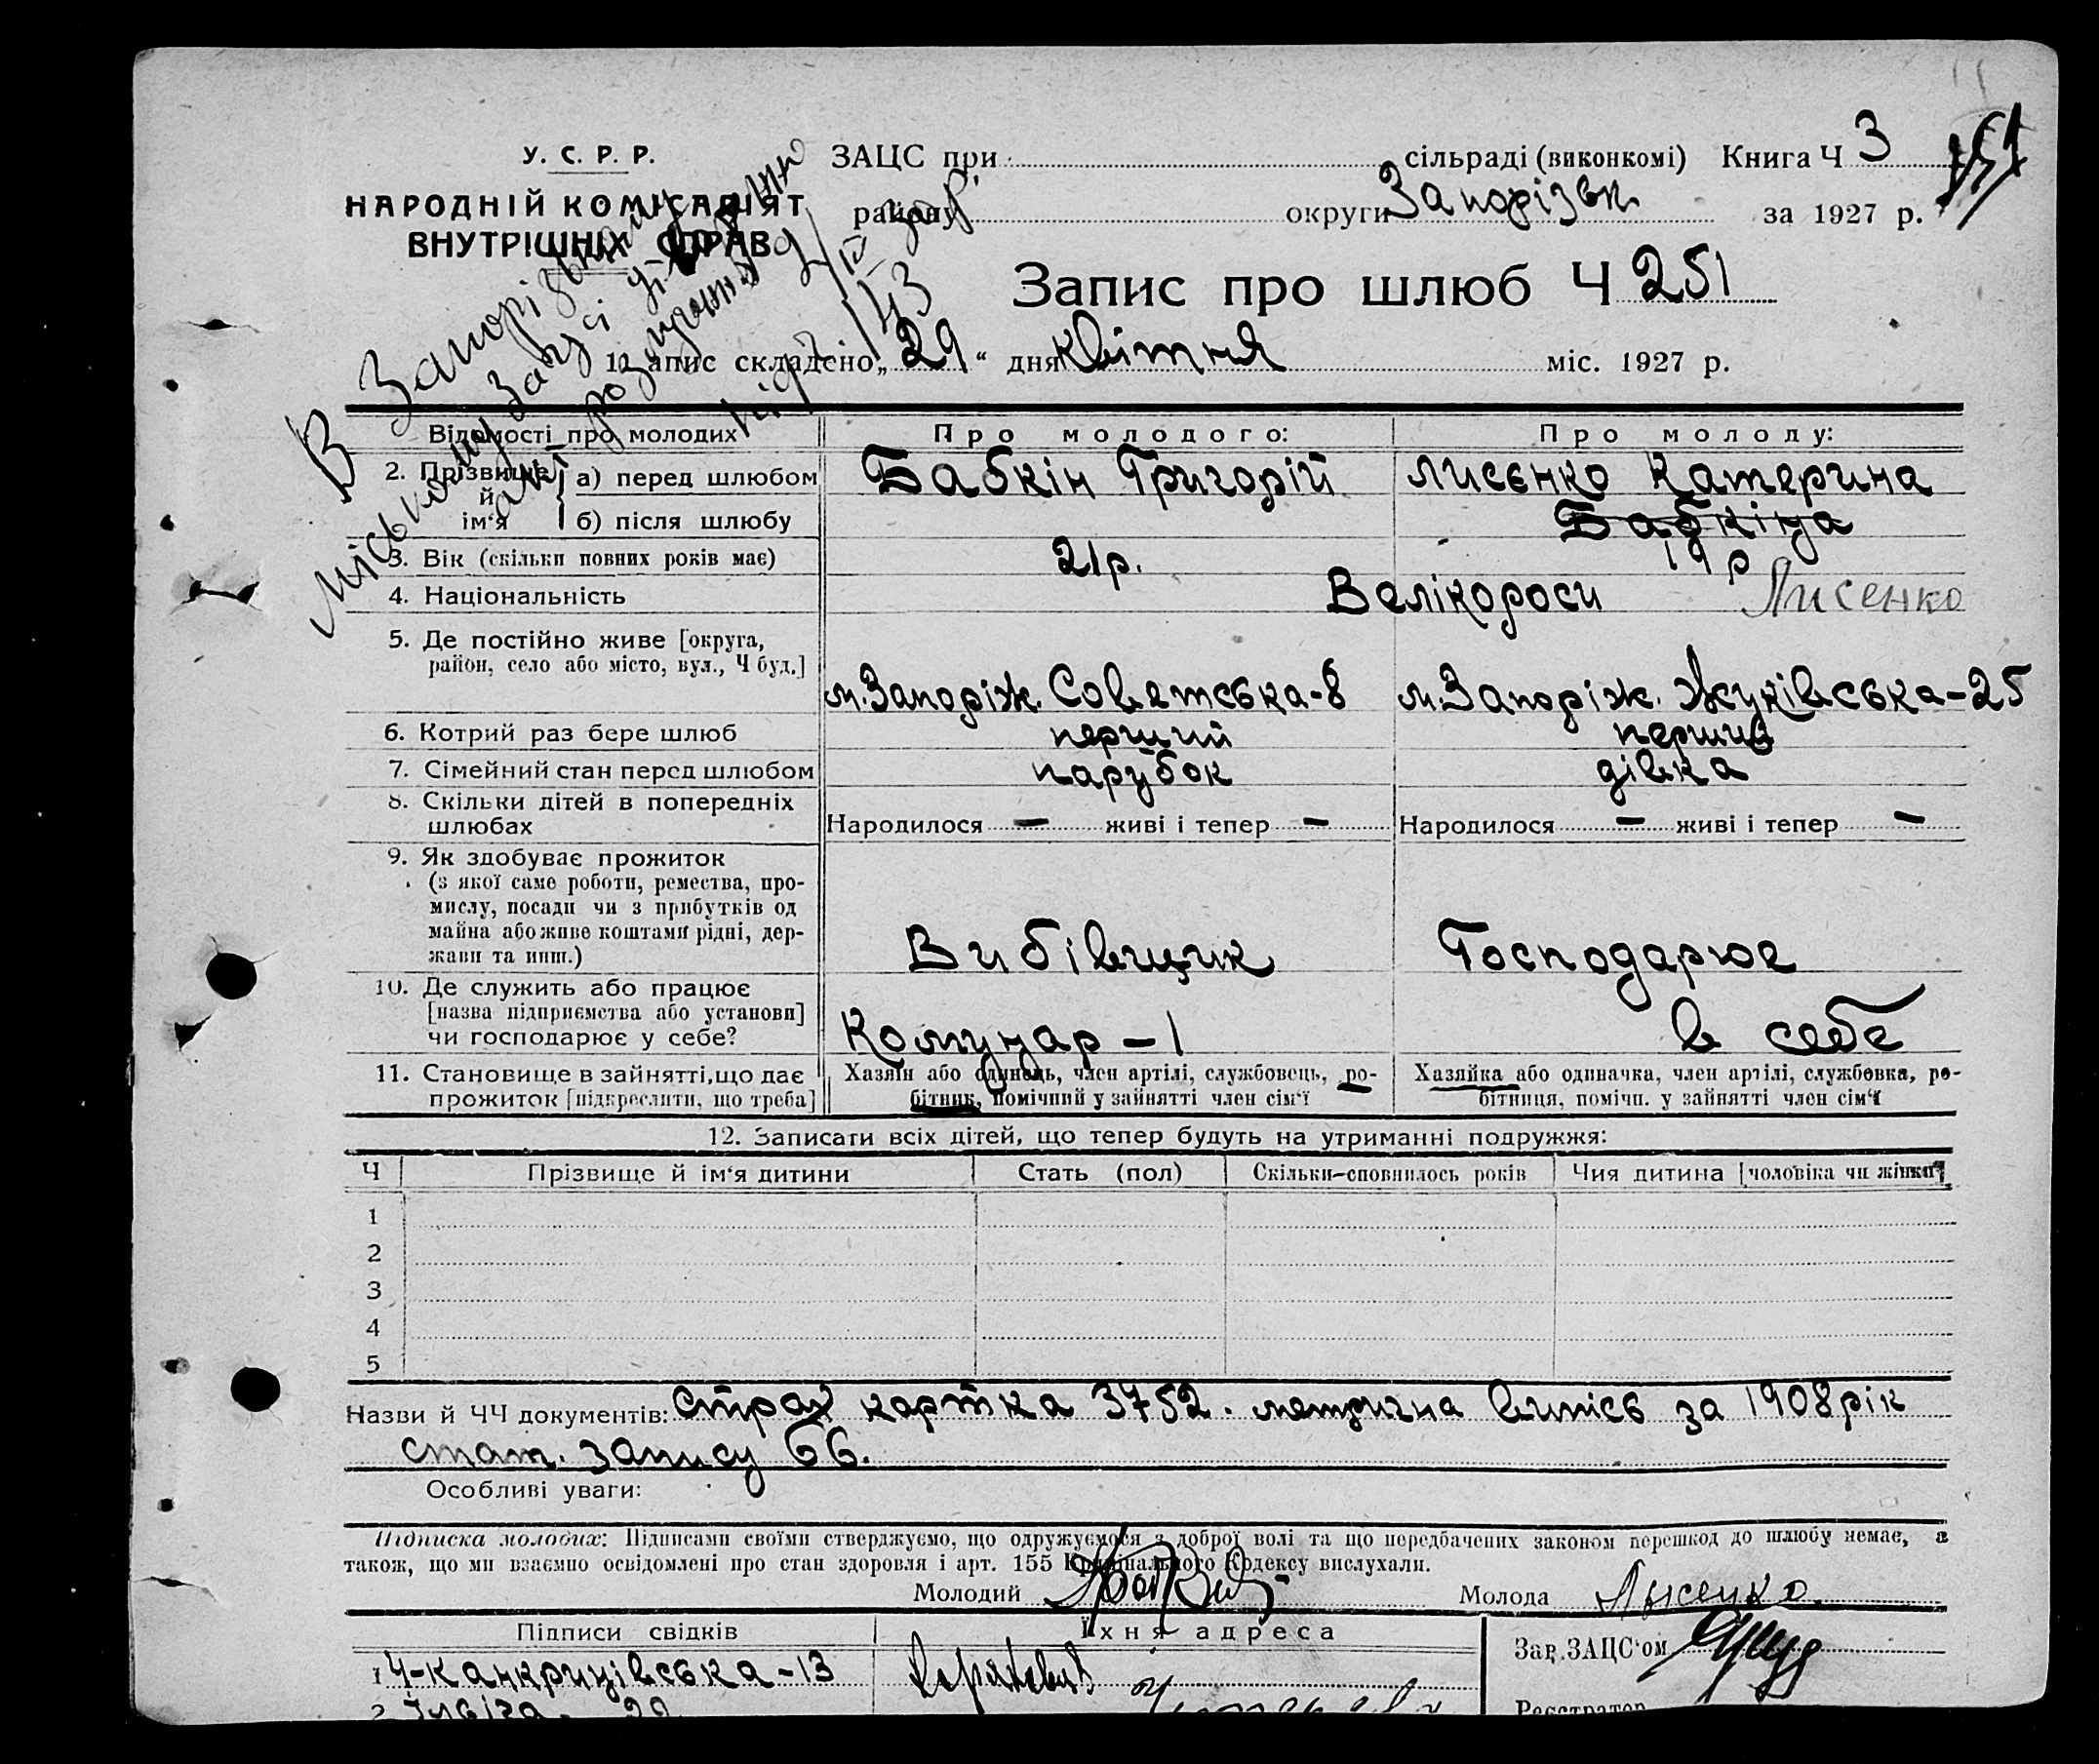 У. С. Р. Р.
НАРОДНІЙ КОМІСАРІЯТ
ВНУТРІШНІХ СПРАВ
ЗАЦС при сільраді (виконкомі) Книга Ч 3
району округи Запорізьк за 1927 р.
Запис про шлюб Ч 251
1. Запис складено „29“ дня квітня міс. 1927 р.
В Запорізькому
міському Загсі
акт розлучення
від 2/IX 43
Відомості про молодих Про молодого: Про молоду:
2. Прізвище й ім'я а) перед шлюбом Бабкін Григорій Лисєнко Катерина
б) після шлюбу Бабкіна
3. Вік (скільки повних років має) 21 р. 19 р
4. Національність Велікороси Лисенко
5. Де постійно живе [округа,
район, село або місто, вул., Ч буд.]
м. Запоріж. Советська-8 м. Запоріж. Жуківська-25
6. Котрий раз бере шлюб перший перший
7. Сімейний стан перед шлюбом парубок дівка
8. Скільки дітей в попередніх
шлюбах Народилося — живі і тепер — Народилося — живі і тепер —
9. Як здобуває прожиток
(з якої саме роботи, ремества, про-
мислу, посади чи з прибутків од
майна або живе коштами рідні, дер-
жави та инш.) Вибівщик Господарює
10. Де служить або працює
[назва підприємства або установи]
чи господарює у себе? Комунар – 1 в себе
11. Становище в зайнятті, що дає
прожиток [підкреслити, що треба]
Хазяїн або одинець, член артілі, службовець, ро-
бітник, помічний у зайнятті член сім'ї
Хазяйка або одиначка, член артілі, службовка, ро-
бітниця, помічн. у зайнятті член сім'ї
12. Записати всіх дітей, що тепер будуть на утриманні подружжя:
Ч Прізвище й ім'я дитини Стать (пол) Скільки-сповнилось років Чия дитина [чоловіка чи жінки]
1
2
3
4
5
Назви й ЧЧ документів: Страх картка 3752. метрична випісь за 1908 рік
стат. запису 66.
Особливі уваги:
Підписка молодих: Підписами своїми стверджуємо, що одружуємося з доброї волі та що передбачених законом перешкод до шлюбу немає, а
також, що ми взаємно освідомлені про стан здоровля і арт. 155 Кримінального Кодексу вислухали.
Молодий Молода Лысенко
Підписи свідків Їхня адреса Зав. ЗАЦС'ом
1 Ч-Канкринівська-13
2
Реєстратор